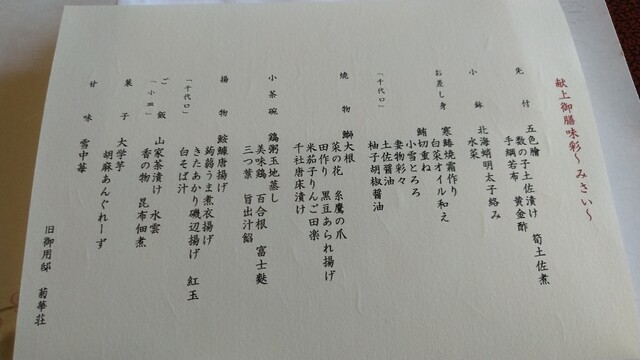 献上御膳味彩～みさい～
先付 五色膾 筍土佐煮
数の子土佐漬け 黄金酢
手綱若布
小鉢 北海蛸明太子絡み
水菜
お差し身 寒鰆焼霜作り
白菜オイル和え
鮪切重ね
小雪とろろ
妻物彩々
「千代口」 土佐醤油
柚子胡椒醤油
焼物 鰤大根
菜の花 糸鷹の爪
田作り 黒豆あられ揚げ
米茄子りんご田楽
千社唐床漬け
小茶碗 鶏粥玉地蒸し
美味鶏 百合根 富士麩
三つ葉 旨出汁餡
揚物 鮟鱇唐揚げ
蒟蒻うま煮衣揚げ
きたあかり磯辺揚げ 紅玉
「千代口」 白そば汁
ご飯 山家茶漬け 水雲
「小皿」 香の物 昆布佃煮
菓子 大学芋
胡麻あんぐれーず
甘味 雪中苺
旧御用邸 菊華荘